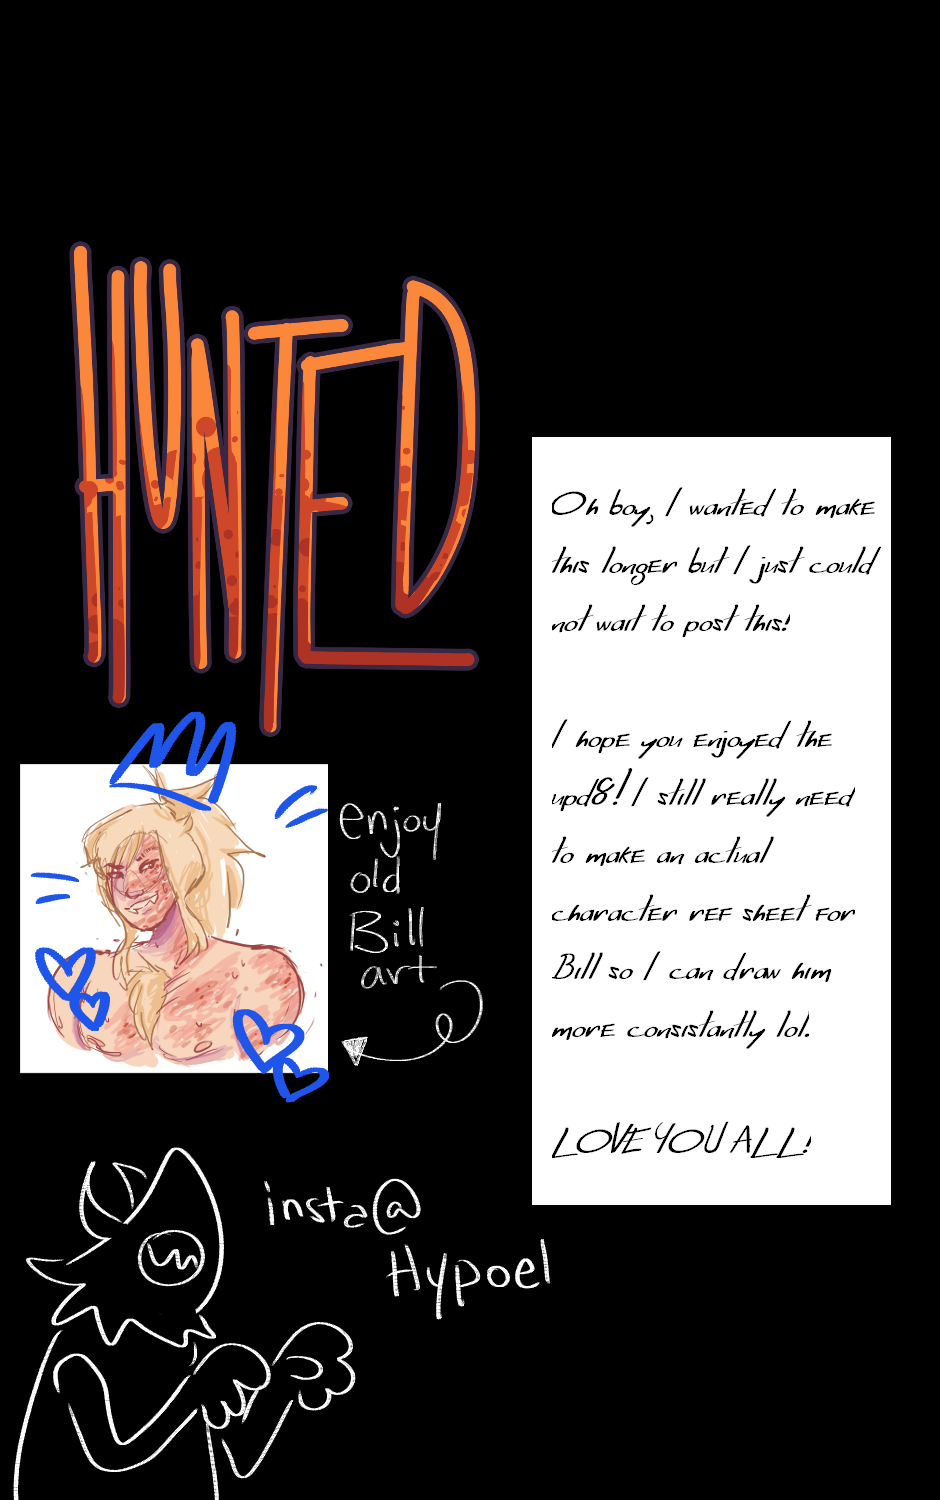 HUNTED
Oh boy, I wanted to make
this longer but I just could
not wait to post this!
I hope you enjoyed the
upd8! I still really need
to make an actual
character ref sheet for
Bill so I can draw him
more consistantly lol.
LOVE YOU ALL!
enjoy
old
Bill
art
insta@
Hypoel